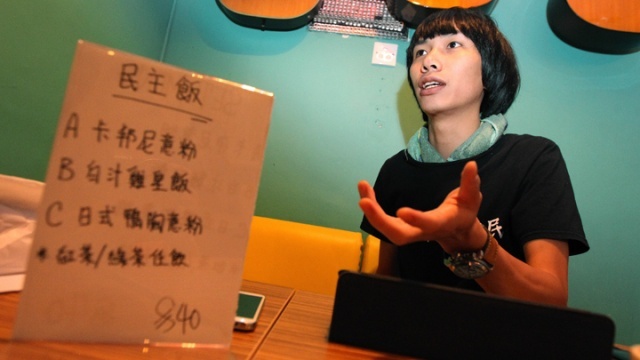 民主飯
A 卡邦尼意粉
B 白汁雞皇飯
C 日式鴨胸意粉
* 紅茶/綠茶任飲
$40
民